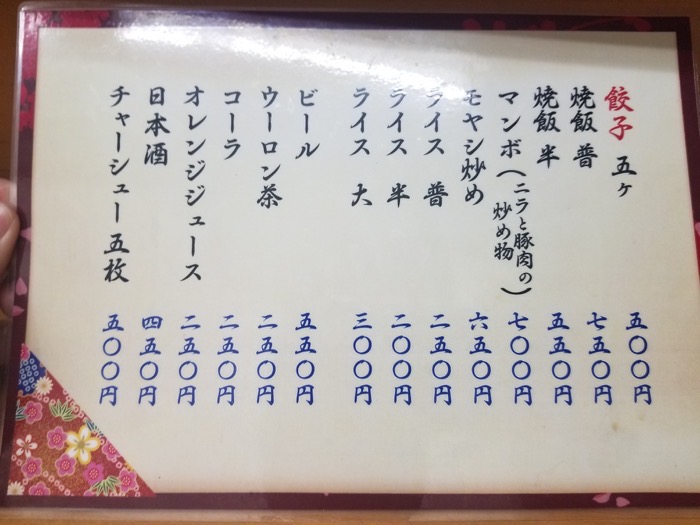 餃子 五ヶ 五〇〇円
焼飯 普 七五〇円
焼飯 半 五五〇円
マンボ(ニラと豚肉の炒め物) 七〇〇円
モヤシ炒め 六五〇円
ライス 普 二五〇円
ライス 半 二〇〇円
ライス 大 三〇〇円
ビール 五五〇円
ウーロン茶 二五〇円
コーラ 二五〇円
オレンジジュース 二五〇円
日本酒 四五〇円
チャーシュー 五枚 五〇〇円